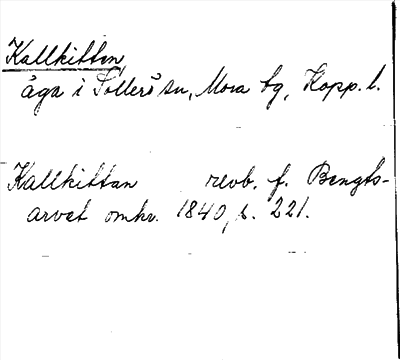 Kallkitton,
äga i Sollerö sn, Mora tg, Kopp. l.
Kallkittan revb. f. Bengts-
arvet omkr. 1840, s. 221.